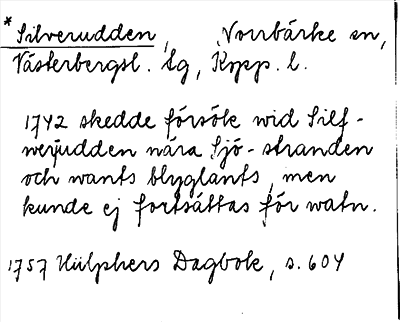 *Silverudden, Norrbärke sn,
Västerbergsl. Lg, Kopp. l.
1742 skedde försök wid Silf-
werudden nära Sjö-stranden
och wants blyglants, men
kunde ej fortsättas för watn.
1757 Hülphers Dagbok, s. 604